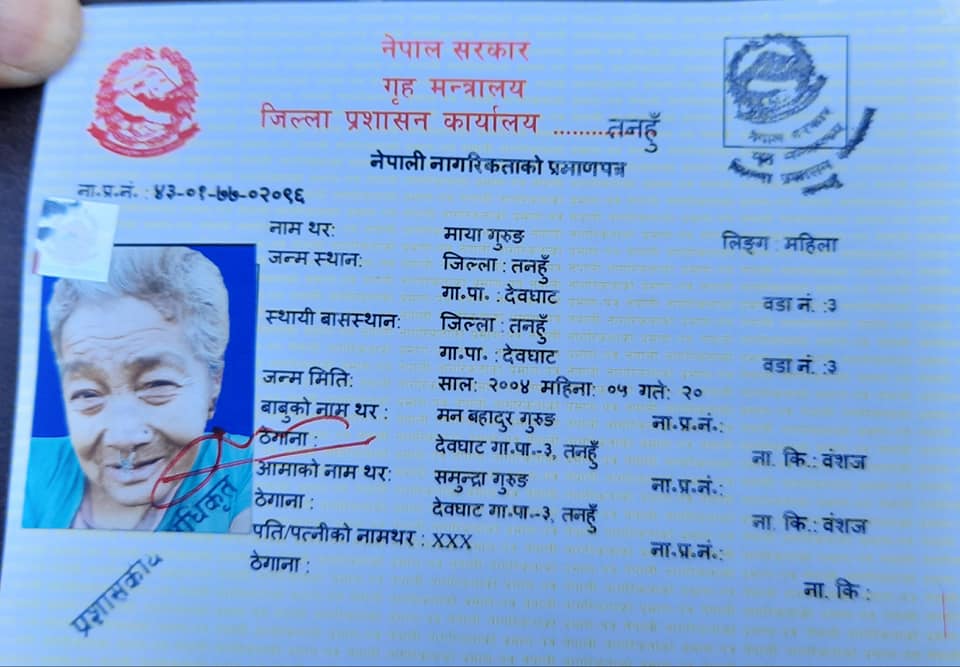 नेपाल सरकार
गृह मन्त्रालय
जिल्ला प्रशासन कार्यालय .........तनहुँ
नेपाली नागरिकताको प्रमाणपत्र
नेपाल सरकार
ना.प्र.नं. : ४३-०१-७७-०२०९६
नाम थर: माया गुरुङ लिङ्ग : महिला
जन्म स्थान: जिल्ला : तनहुँ
गा.पा. : देवघाट वडा नं. :३
स्थायी बासस्थान: जिल्ला : तनहुँ
गा.पा. : देवघाट वडा नं. :३
जन्म मिति: साल: २००४ महिना: ०५ गते: २०
बाबुको नाम थर : मन बहादुर गुरुङ ना.प्र.नं.:
ठेगाना : देवघाट गा.पा.-३, तनहुँ ना. कि.: वंशज
आमाको नाम थर: समुन्द्रा गुरुङ ना.प्र.नं.:
ठेगाना : देवघाट गा.पा.-३, तनहुँ ना. कि.: वंशज
पति/पत्नीको नामथर : XXX ना.प्र.नं.:
ठेगाना : ना. कि :
प्रशासकीय